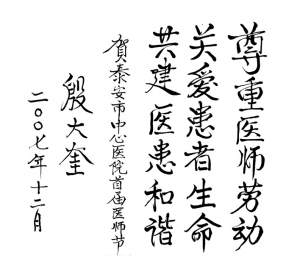 尊重医师劳动
关爱患者生命
共建医患和谐
贺泰安市中心医院首届医师节
殷大奎
二〇〇七年十二月